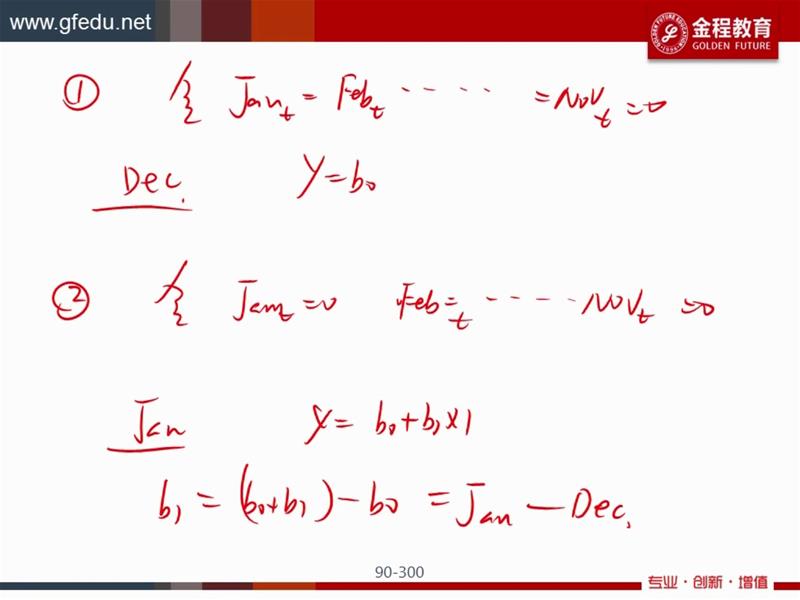 www.gfedu.net
金程教育
GOLDEN FUTURE
① 令 Jan_t = Feb_t ...... = Nov_t = 0
Dec. Y = b₀
② 令 Jan_t = 0 Feb_t = ...... Nov_t = 0
Jan Y = b₀ + b₁ × 1
b₁ = (b₀+b₁) - b₀ = Jan - Dec.
90-300
专业·创新·增值